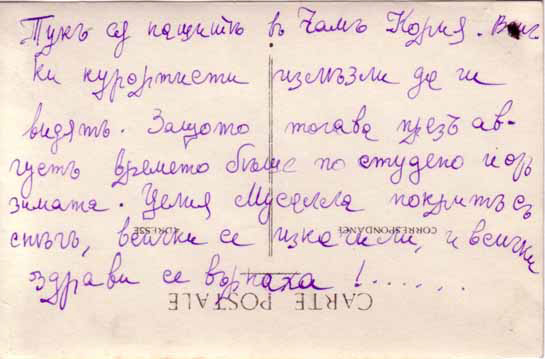 Тукъ са нашитѣ въ Чамъ Кория. Всич-
ки курортисти излѣзли да ги
видятъ. Защото тогава презъ ав-
густъ времето бѣше по студено и отъ
зимата. Целия Мусалла покритъ съ
снѣгъ, всички се изкачили, и всички
здрави се върнаха !.......
ADRESSE
CORRESPONDANCE
CARTE POSTALE